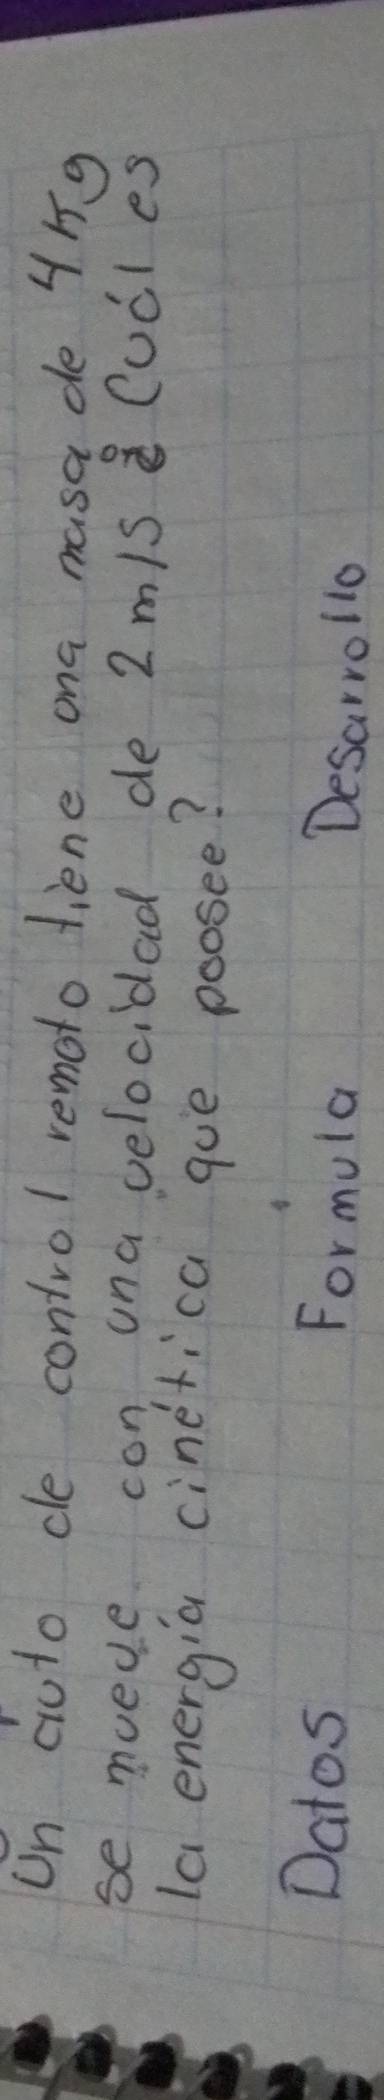 Un auto de control remoto tiene una masa de 4 Kg
se mueve con una velocidad de 2 m/s ¿ Cuál es
la energía cinética que poosee?
Datos Formula Desarrollo